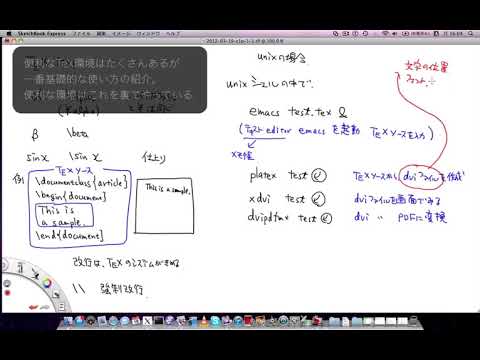 SketchBook Express ファイル 編集 イメージ ウインドウ ヘルプ
便利なTeX環境はたくさんあるが
一番基礎的な使い方の紹介。
便利な環境はこれを裏で行っている
β \beta
sin x \sin x 仕上り
例 TEXソース
\documentclass{article}
\begin{document}
This is
a sample.
\end{document}
This is a sample.
改行は、TEXのシステムがきめる
\\ 強制改行
unixの場合
unix シェルの中で、
emacs test.tex &
(テキスト editor emacs を起動 TEXソースを入力)
platex test
TEXソースから dviファイルを作成
xdvi test
dviファイルを画面でみる
dvipdfmx test
dvi 〃 PDFに変換
文字の位置
フォント、